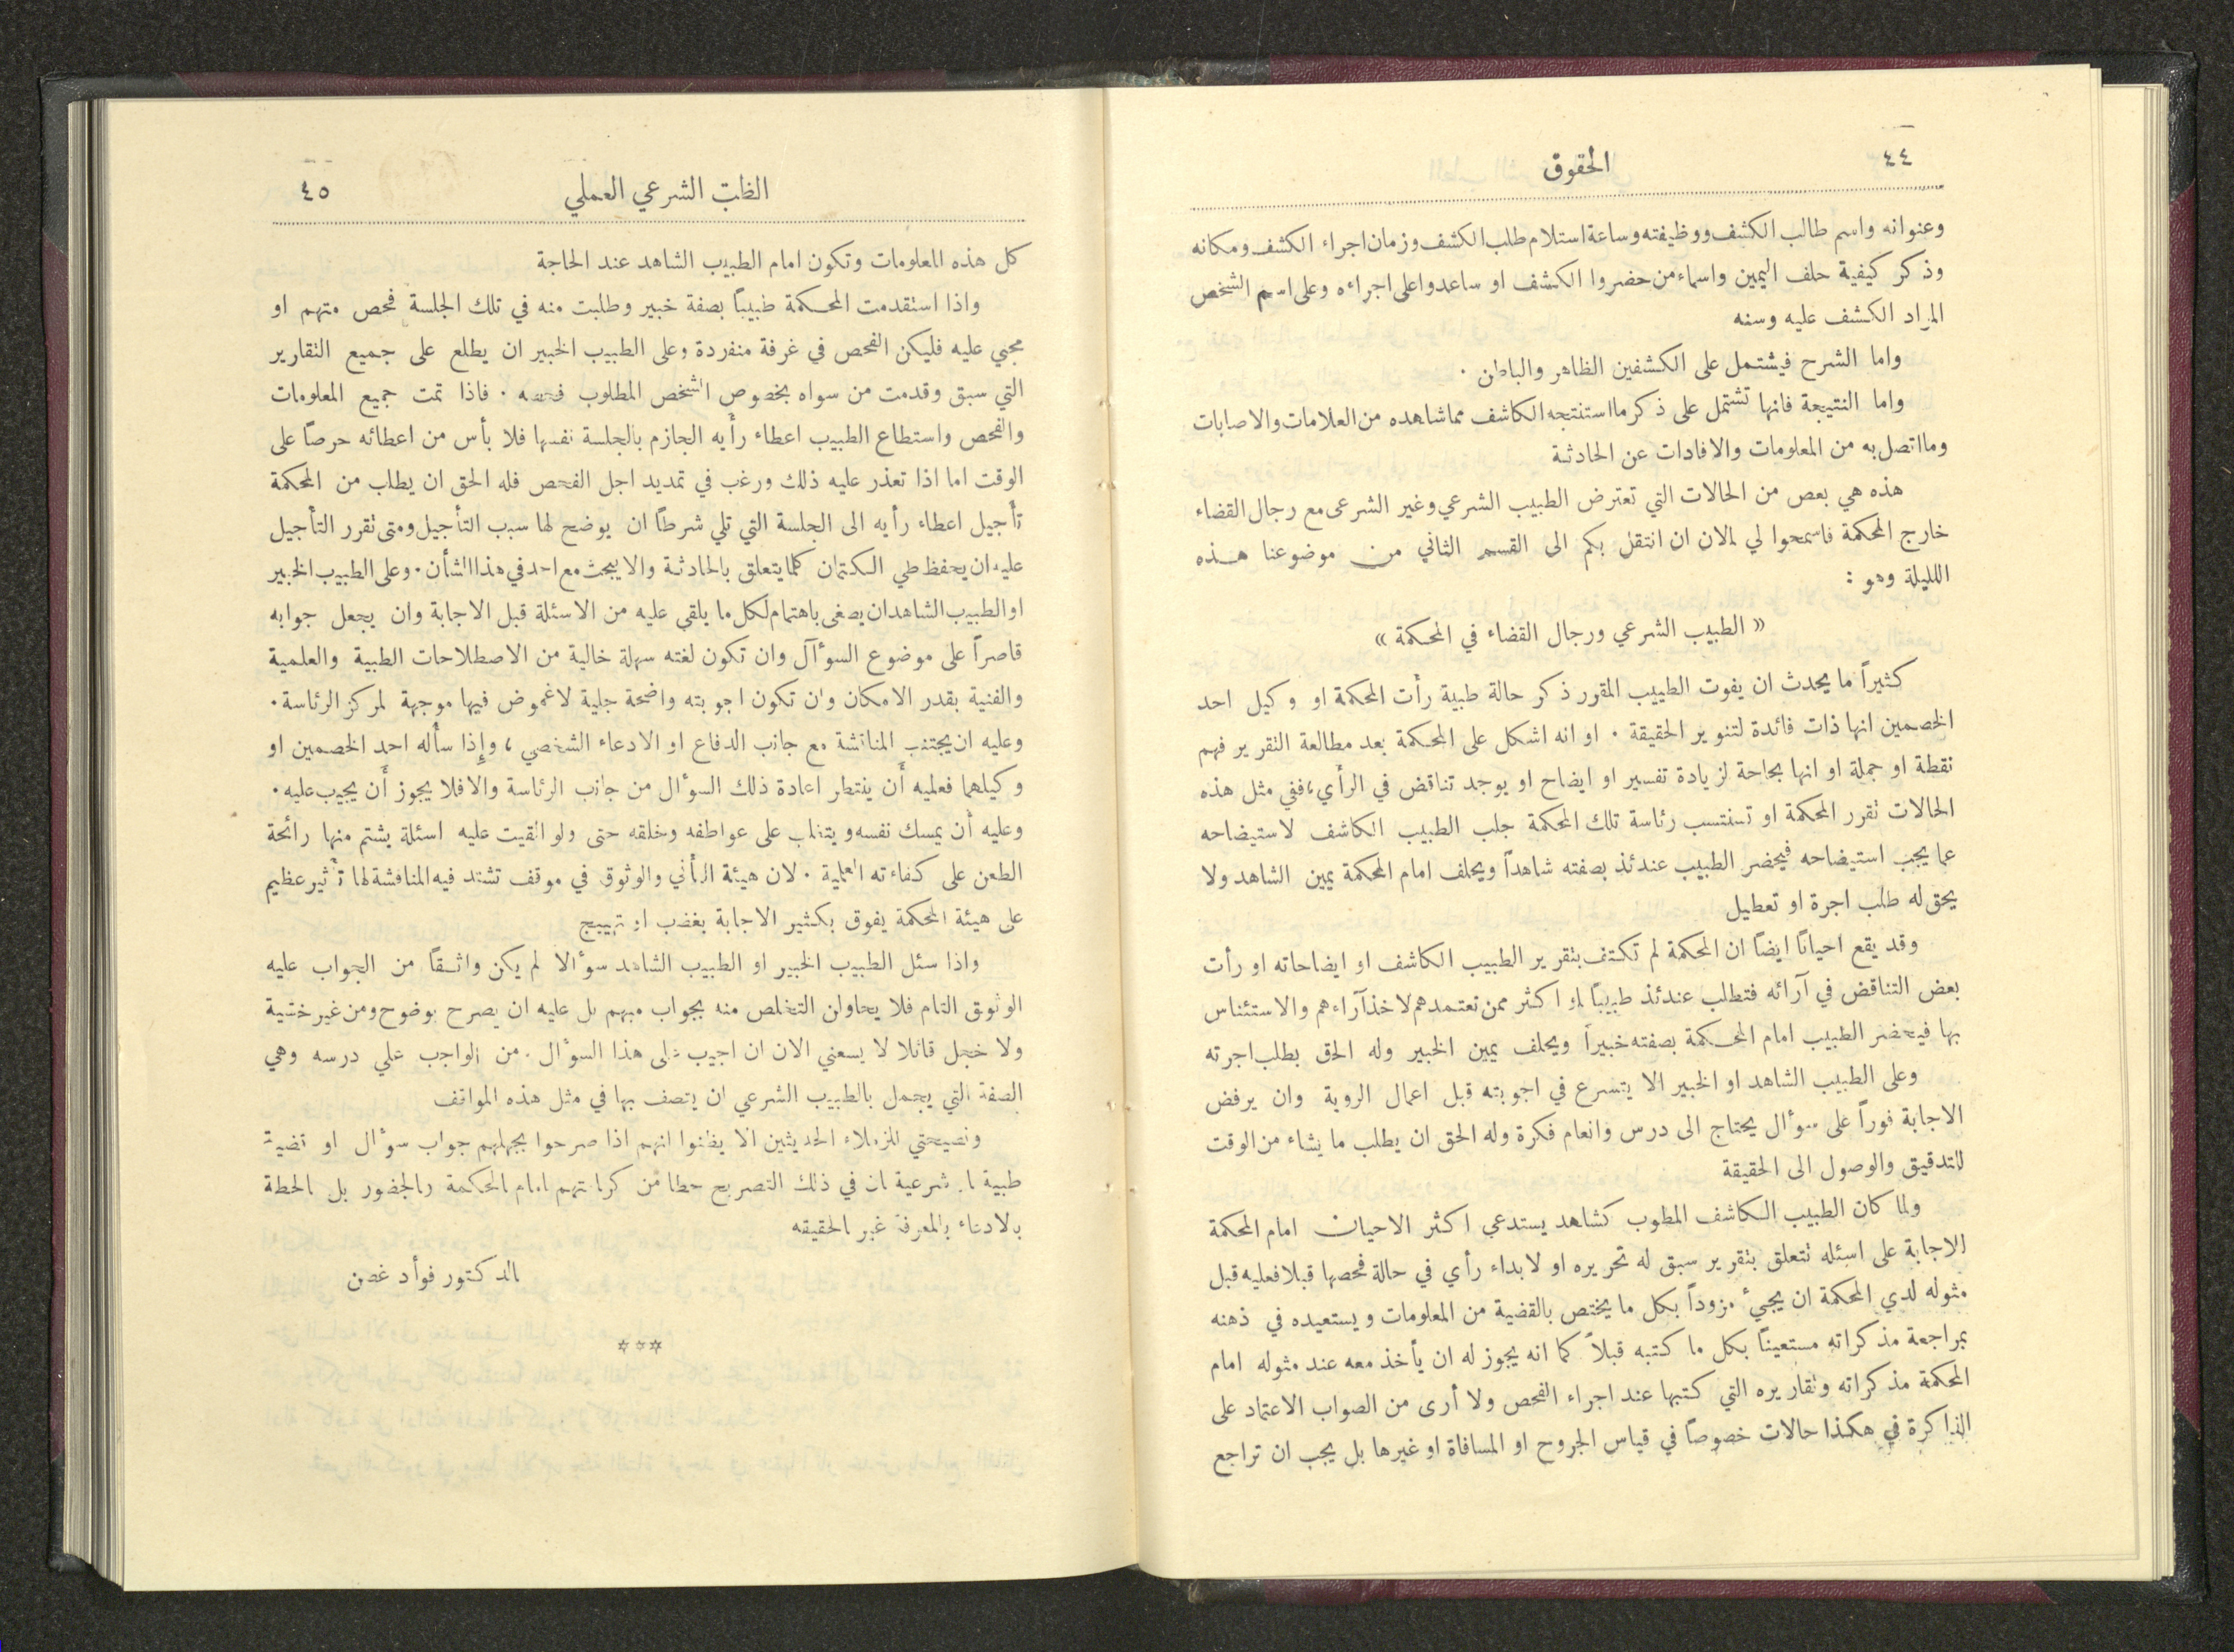 ٤٤
الحقوق
وعنوانه واسم طالب الكشف ووظيفته وساعة استلام طلب الكشف وزمان اجراء الكشف ومكانه
وذكر كيفية حلف اليمين واسماء من حضروا الكشف او ساعدوا على اجراءه وعلى اسم الشخص
المراد الكشف عليه وسنه
واما الشرح فيشتمل على الكشفين الظاهر والباطن .
واما النتيجة فانها تشتمل على ذكر ما استنتجه الكاشف مما شاهده من العلامات والاصابات
وما اتصل به من المعلومات والافادات عن الحادثة
هذه هي بعص من الحالات التي تعترض الطبيب الشرعي وغير الشرعى مع رجال القضاء
خارج المحكمة فاسمحوا لي الان ان انتقل بكم الى القسم الثاني من موضوعنا هذه
الليلة وهو :
« الطبيب الشرعي ورجال القضاء في المحكمة »
كثيراً ما يحدث ان يفوت الطبيب المقرر ذكر حالة طبية رأت المحكمة او وكيل احد
الخصمين انها ذات فائدة لتنوير الحقيقة . او انه اشكل على المحكمة بعد مطالعة التقرير فهم
نقطة او جملة او انها بحاجة لزيادة تفسير او ايضاح او يوجد تناقض في الرأي ، ففي مثل هذه
الحالات تقرر المحكمة او تستنسب رئاسة تلك المحكمة جلب الطبيب الكاشف لاستيضاحه
عما يجب استيضاحه فيحضر الطبيب عندئذ بصفته شاهداً ويحلف امام المحكمة يمين الشاهد ولا
يحق له طلب اجرة او تعطيل
وقد يقع احيانًا ايضًا ان المحكمة لم تكتف بتقرير الطبيب الكاشف او ايضاحاته او رأت
بعض التناقض في آرائه فتطلب عندئذ طبيبًا او اكثر ممن تعتمدهم لاخذ آراءهم والاستئناس
بها فيحضر الطبيب امام المحكمة بصفته خبيراً ويحلف يمين الخبير وله الحق بطلب اجرته
وعلى الطبيب الشاهد او الخبير الا يتسرع في اجوبته قبل اعمال الروية وان يرفض
الاجابة فوراً على سوأل يحتاج الى درس وانعام فكرة وله الحق ان يطلب ما يشاء من الوقت
للتدقيق والوصول الى الحقيقة
ولما كان الطبيب الكاشف المطوب كشاهد يستدعى اكثر الاحيان امام المحكمة
الاجابة على اسئله تتعلق بتقرير سبق له تحريره او لابداء رأي في حالة فحصها قبلا فعليه قبل
مثوله لدي المحكمة ان يجيء مزوداً بكل ما يختص بالقضية من المعلومات ويستعيده في ذهنه
بمراجعة مذكراته مستعينًا بكل ما كتبه قبلاً كما انه يجوز له ان يأخذ معه عند مثوله امام
المحكمة مذكراته وتقاريره التي كتبها عند اجراء الفحص ولا أرى من الصواب الاعتماد على
الذاكرة في هكذا حالات خصوصًا في قياس الجروح او المسافاة او غيرها بل يجب ان تراجع
الطب الشرعي العملي
٤٥
كل هذه المعلومات وتكون امام الطبيب الشاهد عند الحاجة
واذا استقدمت المحكمة طبيبًا بصفة خبير وطلبت منه في تلك الجلسة فحص متهم او
مجني عليه فليكن الفحص في غرفة منفردة وعلى الطبيب الخبير ان يطلع على جميع التقارير
التي سبق وقدمت من سواه بخصوص الشخص المطلوب فحصه . فاذا تمت جميع المعلومات
والفحص واستطاع الطبيب اعطاء رأيه الجازم بالجلسة نفسها فلا بأس من اعطائه حرصًا على
الوقت اما اذا تعذر عليه ذلك ورغب في تمديد اجل الفحص فله الحق ان يطلب من المحكمة
تأجيل اعطاء رأيه الى الجلسة التي تلي شرطًا ان يوضح لها سبب التأجيل ومتى تقرر التأجيل
عليه ان يحفظ طي الكتمان كلما يتعلق بالحادثة والا يبحث مع احد في هذا الشأن . وعلى الطبيب الخبير
او الطبيب الشاهد ان يصغى باهتمام لكل ما يلقى عليه من الاسئلة قبل الاجابة وان يجعل جوابه
قاصراً على موضوع السوآل وان تكون لغته سهلة خالية من الاصطلاحات الطبية والعلمية
والفنية بقدر الامكان وان تكون اجوبته واضحة جلية لا غموض فيها موجهة لمركز الرئاسة .
وعليه ان يجتنب المناقشة مع جانب الدفاع او الادعاء الشخصي ، وإذا سأله احد الخصمين او
وكيلهما فعليه أن ينتظر اعادة ذلك السوأل من جانب الرئاسة والا فلا يجوز أن يجيب عليه .
وعليه أن يمسك نفسه ويتغلب على عواطفه وخلقه حتى ولو القيت عليه اسئلة يشتم منها رائحة
الطعن على كفاءته العلمية . لان هيئة التأني والوثوق في موقف تشتد فيه المناقشة لها تأثير عظيم
على هيئة المحكمة يفوق بكثير الاجابة بغضب او تهييج
واذا سئل الطبيب الخبير او الطبيب الشاهد سوألا لم يكن واثقًا من الجواب عليه
الوثوق التام فلا يحاولن التخلص منه بجواب مبهم بل عليه ان يصرح بوضوح ومن غير خشية
ولا خجل قائلا لا يسعني الان ان اجيب على هذا السوأل . من الواجب علي درسه وهي
الصفة التي يجمل بالطبيب الشرعي ان يتصف بها في مثل هذه المواقف
ونصيحتي للزملاء الحديثين الا يظنوا انهم اذا صرحوا بجهلهم جواب سوأل او قضية
طبية شرعية ان في ذلك التصريح حطا من كرامتهم امام المحكمة والحضور بل الحطة
بالادعاء بالمعرفة غير الحقيقه
الدكتور فوأد غصن
***